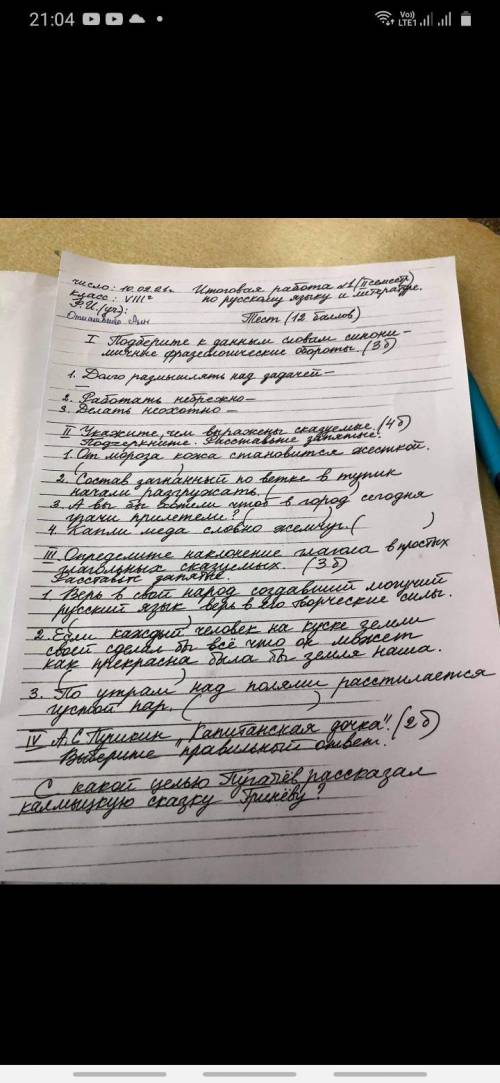 21:04
Vo)) LTE1
число: 10.02.26г. Итоговая работа №1 (II семестр)
класс: VIII² по русскому языку и литературе.
Ф.И.(уч):
Тест (12 баллов)
I Подберите к данным словам синони-
мичные фразеологические обороты. (3б)
1. Долго размышлять над задачей-
2. Работать небрежно-
3. Делать неохотно-
II Укажите, чем выражены сказуемые. (4б)
Подчеркните. Расставьте запятые.
1. От мороза кожа становится жесткой.
( )
2. Состав загнанный по ветке в тупик
начали разгружать. ( )
3. А вы бы хотели чтоб в город сегодня
грачи прилетели? ( )
4. Капли меда словно жемчуг. ( )
III Определите наклонение глагола в простых
глагольных сказуемых. (3б)
Расставьте запятые.
1. Верь в свой народ создавший могучий
русский язык верь в его творческие силы.
( )
2. Если каждый человек на куске земли
своей сделал бы всё что он может
как прекрасна была бы земля наша.
( )
3. По утрам над полями расстилается
густой пар. ( )
IV А.С. Пушкин „Капитанская дочка". (2б)
Выберите правильный ответ.
С какой целью Пугачёв рассказал
калмыцкую сказку Гринёву?